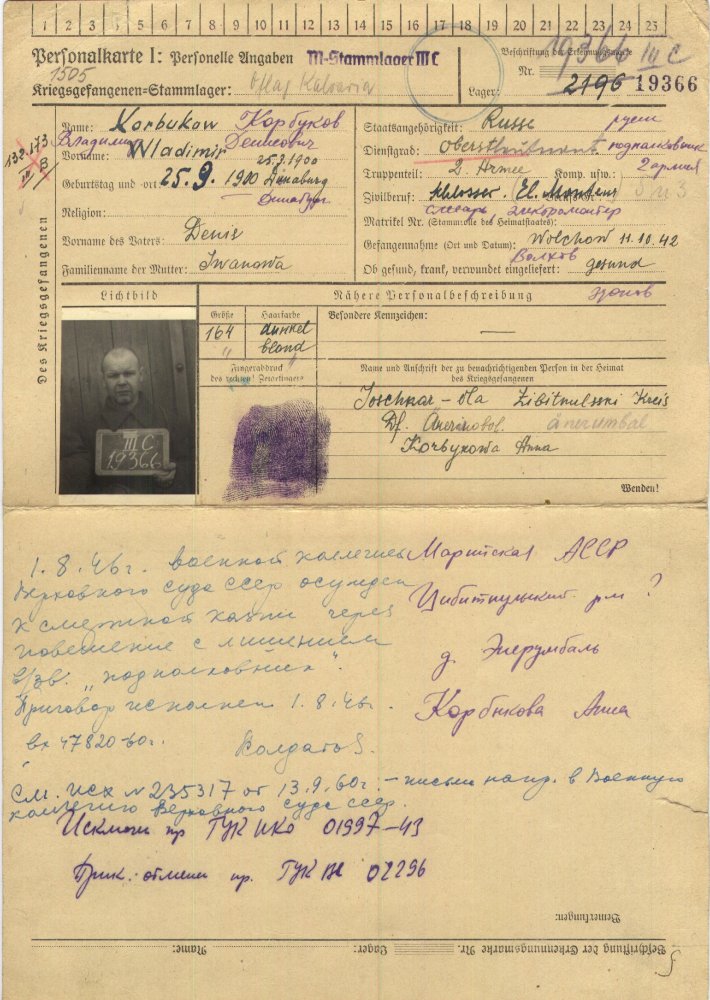 1 2 3 4 5 6 7 8 9 10 11 12 13 14 15 16 17 18 19 20 21 22 23 24 25
Personalkarte I: Personelle Angaben
M-Stammlager III C
Beschriftung der Erkennungsmarke
19366 III C
1505
Kriegsgefangenen-Stammlager: Oflag Kalvaria
Nr. 2196 19366
Lager:
Des Kriegsgefangenen
132-173
III B
Name: Korbukow Корбуков
Владимир Денисович
Vorname: Wladimir
25.9.1900
Geburtstag und -ort 25.9. 1900 Dünaburg
Динабург
Religion:
Vorname des Vaters: Denis
Familienname der Mutter: Iwanowa
Staatsangehörigkeit: Russe русск
Dienstgrad: Oberstleutnant подполковник
Truppenteil: 2. Armee Komp. usw.: 2 армия
Zivilberuf: Schlosser (El. Monteur
слесарь электромонтер
Matrikel Nr. (Stammrolle des Heimatstaates)
Gefangennahme (Ort und Datum): Wolchow 11.10.42
Волхов
Ob gesund, krank, verwundet eingeliefert: gesund
здоров
Lichtbild
Nähere Personalbeschreibung
Größe
Haarfarbe
164
dunkel
blond
Besondere Kennzeichen: —
Fingerabdruck
des rechten! Zeigefingers
Name und Anschrift der zu benachrichtigenden Person in der Heimat
des Kriegsgefangenen
Joschkar-Ola Zibitnulsski Kreis
Df.
Korbukowa Anna
III C
19366
Wenden!
1.8.46г. военной коллегией
Верховного суда СССР осужден
к смертной казни через
повешение с лишением
в/зв. "подполковник".
Приговор исполнен 1.8.46г.
вх 47820-60г.
Марийская АССР
Цибиткульский р-н ?
д. Энерумбаль
Корбукова Анна
См. исх N 235317 от 13.9.60г. - письмо напр. в Военную
коллегию Верховного суда СССР.
пр ГУК НКО 01997-43
отменен пр. ГУК 02296
Bemerkungen:
Beschriftung der Erkennungsmarke Nr.
Lager:
Name: